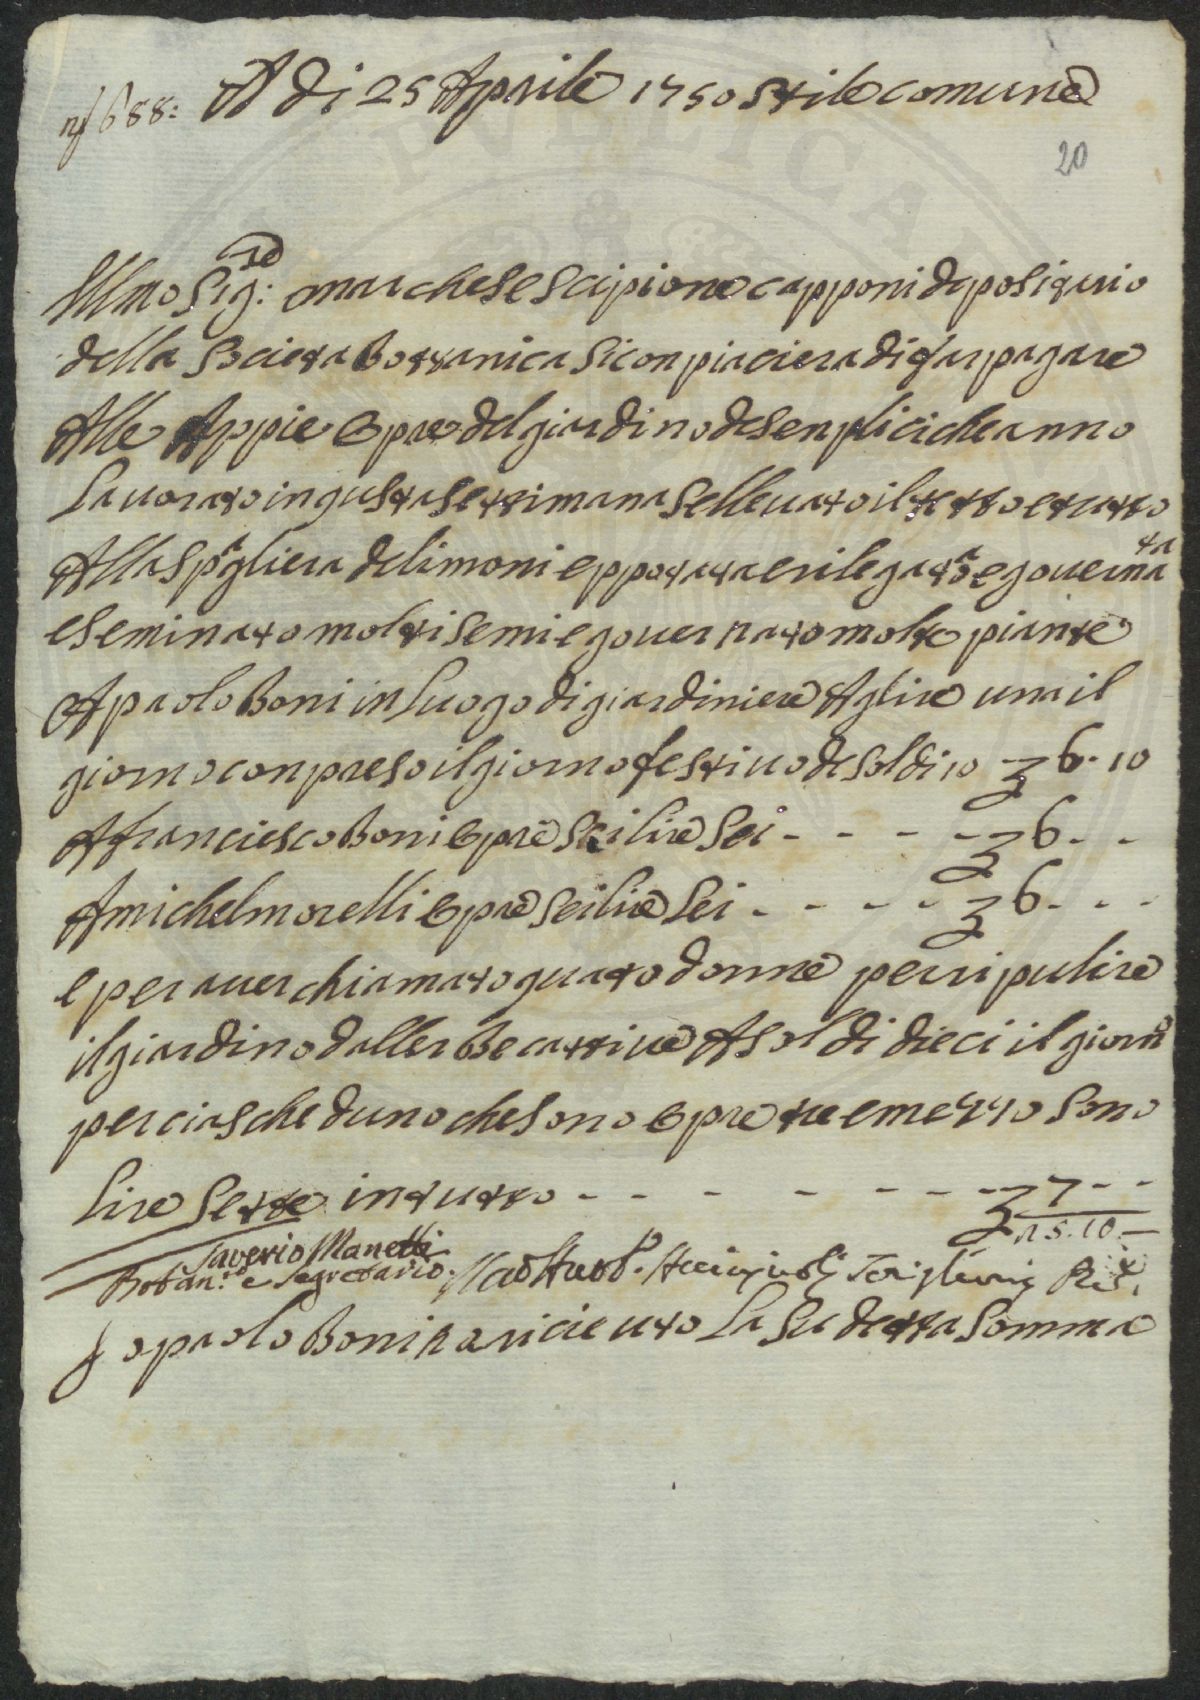 nº 688: A di 25 Aprile 1750 stile comune
20
Illmo Sig:re marchese scipione capponi depositario
della Societa Bottanica si conpiaciera di far pagare
Alle Appie Opre del giardino de senplici che anno
Lauorato in qusta settimana selleuato il tetto e tutto
Alla spagliera de limoni e ppotata e rilegato e gouernata
e seminato molti semi e gouernato molte piante
A paolo Boni in Luogo di giardiniere A lire una il
giorno conpreso il giorno festiuo de soldi 10 £ 6. 10
A franciesco Boni Opre sei lire sei - - - - £ 6. - -
A michel morelli Opre sei lire sei - - - - £ 6. - - -
e per auer chiamato quato donne per ripulire
il giardino dall erbe cattiue A soldi dieci il giorno
per ciascheduno che sono Opre tre e metto sono
Lire sette in tutto - - - - - - - £ 7 - -
£ 25. 10 —
Saverio Manetti
Botan.co e Segretario.
Io paolo Boni ho ricieuto La su detta somma